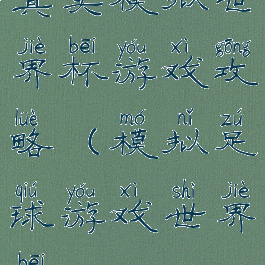 真实模拟世
jiè bēi yóu xì gōng
界杯游戏攻
lüè mó nǐ zú
略（模拟足
qiú yóu xì shì jiè
球游戏世界
bēi